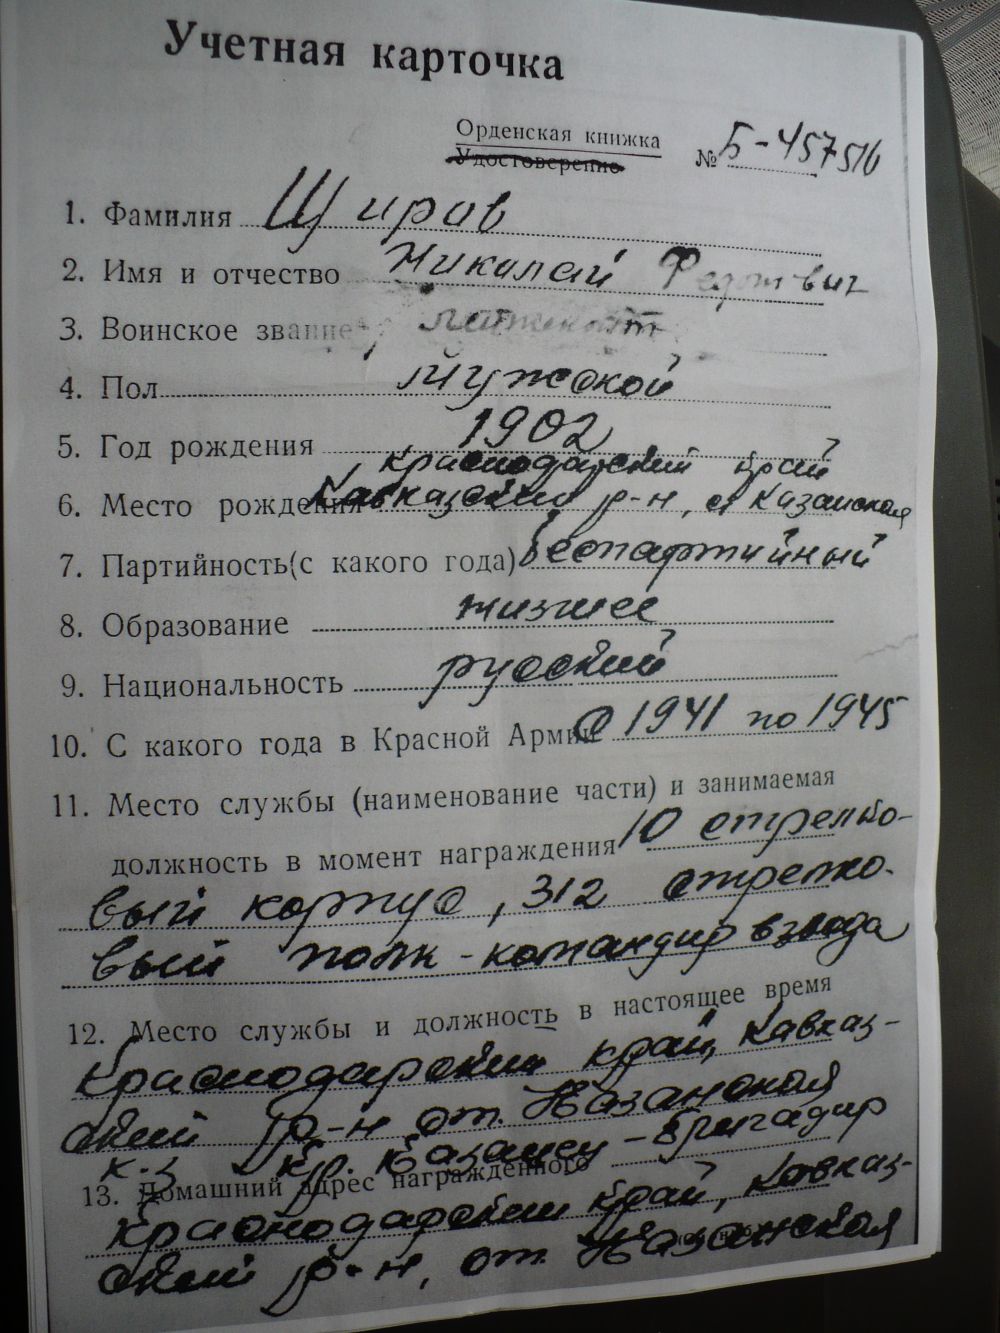 Учетная карточка
Орденская книжка
Удостоверение
№ Б-457516
1. Фамилия Щиров
2. Имя и отчество Николай Федотович
3. Воинское звание лейтенант
4. Пол мужской
5. Год рождения 1902
Краснодарский край
6. Место рождения Кавказский р-н, ст Казанская
7. Партийность(с какого года) беспартийный
8. Образование низшее
9. Национальность русский
10. С какого года в Красной Армии с 1941 по 1945
11. Место службы (наименование части) и занимаемая
должность в момент награждения 10 стрелко-
вый корпус, 312 стрелко-
вый полк - командир взвода
12. Место службы и должность в настоящее время
Краснодарский край, Кавказ-
ский р-н ст. Казанская
к-з Кр. Казанец - бригадир
13. Домашний адрес награжденного
Краснодарский край, Кавказ-
ский р-н, ст. Казанская